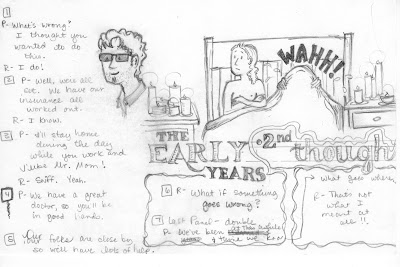 1
P- What's wrong?
I thought you
wanted to do
this.
R- I do!
2 P- Well, we're all
set. We have our
insurance all
worked out.
R- I know.
3 P- I'll stay home
during the day
while you work and
be Mr. Mom!
R- Sniff. Yeah
4 P- We have a great
doctor, so you'll be
in good hands.
5 our folks are close by
so we'll have lots of help.
WAHH!
THE
EARLY
YEARS
2nd though
6 R- What if something
goes wrong?
7 Last Panel - double
R- We've been
at this awhile
& think we
→ what goes where
R- That's not
what I
meant at
all!!